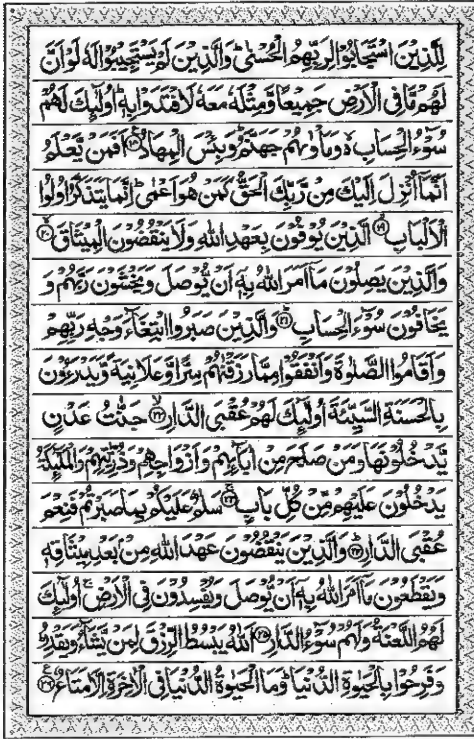 لِلَّذِیْنَ اسْتَجَابُوْا لِرَبِّهِمُ الْحُسْنٰی ؕ وَالَّذِیْنَ لَمْ یَسْتَجِیْبُوْا لَهٗ لَوْ اَنَّ
لَهُمْ مَّا فِی الْاَرْضِ جَمِیْعًا وَّمِثْلَهٗ مَعَهٗ لَافْتَدَوْا بِهٖ ؕ اُولٰٓئِكَ لَهُمْ
سُوْٓءُ الْحِسَابِ ۙ۬ وَمَاْوٰىهُمْ جَهَنَّمُ ؕ وَبِئْسَ الْمِهَادُ ﴿۱۸﴾ اَفَمَنْ یَّعْلَمُ
اَنَّمَاۤ اُنْزِلَ اِلَیْكَ مِنْ رَّبِّكَ الْحَقُّ كَمَنْ هُوَ اَعْمٰی ؕ اِنَّمَا یَتَذَكَّرُ اُولُوا
الْاَلْبَابِ ﴿۱۹﴾ الَّذِیْنَ یُوْفُوْنَ بِعَهْدِ اللّٰهِ وَلَا یَنْقُضُوْنَ الْمِیْثَاقَ ﴿۲۰﴾
وَالَّذِیْنَ یَصِلُوْنَ مَاۤ اَمَرَ اللّٰهُ بِهٖۤ اَنْ یُّوْصَلَ وَیَخْشَوْنَ رَبَّهُمْ وَ
یَخَافُوْنَ سُوْٓءَ الْحِسَابِ ﴿۲۱﴾ وَالَّذِیْنَ صَبَرُوا ابْتِغَآءَ وَجْهِ رَبِّهِمْ
وَاَقَامُوا الصَّلٰوةَ وَاَنْفَقُوْا مِمَّا رَزَقْنٰهُمْ سِرًّا وَّعَلَانِیَةً وَّیَدْرَءُوْنَ
بِالْحَسَنَةِ السَّیِّئَةَ اُولٰٓئِكَ لَهُمْ عُقْبَی الدَّارِ ﴿۲۲﴾ جَنّٰتُ عَدْنٍ
یَّدْخُلُوْنَهَا وَمَنْ صَلَحَ مِنْ اٰبَآىِٕهِمْ وَاَزْوَاجِهِمْ وَذُرِّیّٰتِهِمْ وَالْمَلٰٓىِٕكَةُ
یَدْخُلُوْنَ عَلَیْهِمْ مِّنْ كُلِّ بَابٍ ﴿۲۳﴾ سَلٰمٌ عَلَیْكُمْ بِمَا صَبَرْتُمْ فَنِعْمَ
عُقْبَی الدَّارِ ﴿۲۴﴾ وَالَّذِیْنَ یَنْقُضُوْنَ عَهْدَ اللّٰهِ مِنْ بَعْدِ مِیْثَاقِهٖ
وَیَقْطَعُوْنَ مَاۤ اَمَرَ اللّٰهُ بِهٖۤ اَنْ یُّوْصَلَ وَیُفْسِدُوْنَ فِی الْاَرْضِ ۙ اُولٰٓئِكَ
لَهُمُ اللَّعْنَةُ وَلَهُمْ سُوْٓءُ الدَّارِ ﴿۲۵﴾ اَللّٰهُ یَبْسُطُ الرِّزْقَ لِمَنْ یَّشَآءُ وَیَقْدِرُ ؕ
وَفَرِحُوْا بِالْحَیٰوةِ الدُّنْیَا ؕ وَمَا الْحَیٰوةُ الدُّنْیَا فِی الْاٰخِرَةِ اِلَّا مَتَاعٌ ﴿۲۶﴾